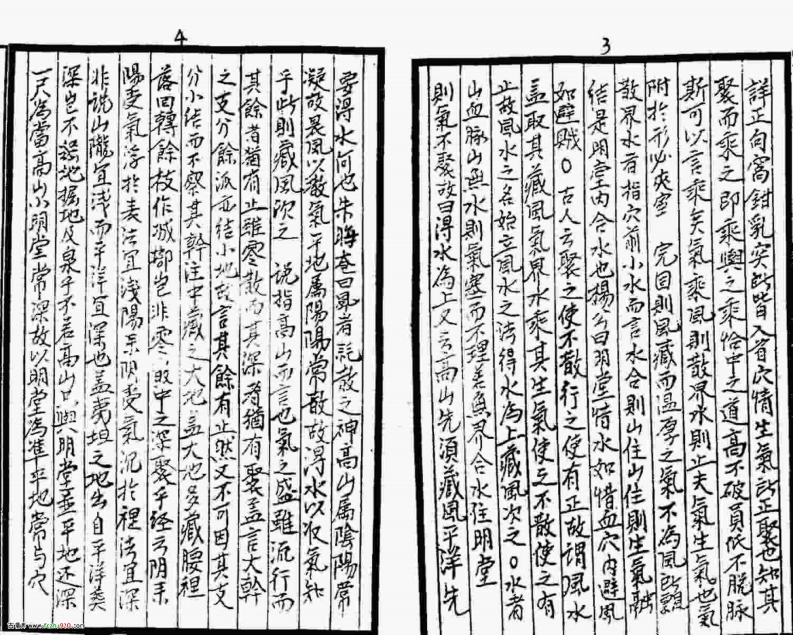 3
詳正向窩鉗乳突所皆入首穴情生氣所正聚也知其
聚而乘之即乘輿之乘恰中之道高不破員低不脫脉
斯可以言乘矣氣乘風則散界水則止夫氣生氣也氣
附於形必夾室 完固則風藏而温厚之氣不為風所飄
散界水者指穴前小水而言水合則山住山住則生氣融
結是明堂内合水也楊公曰明堂惜水如惜血穴内避風
如避賊○古人云聚之使不散行之使有正故謂風水
盖取其藏風氣界水乘其生氣使之不散使之有
止故風水之名始立風水之法得水為上藏風次之○水者
山血脉山無水則氣塞而不理善無界合水住明堂
則氣不聚故曰得水為上又云高山先須藏風平洋先
4
要得水何也朱晦庵曰風者耗散之神高山属陰陽常
凝故畏風以散氣平地属陽陽常散故得水以收氣知
乎此則藏風次之 說指高山而言也氣之盛雖流行而
其餘者猶有止雖零散而其深者猶有聚盖言大幹
之支分餘派亦結小地故言其餘有止然又不可因其支
分小結而不察其幹注中藏之大地盖大地多藏腰裡
落回轉餘枝作城郭豈非零散中之深聚乎經云陰来
陽受氣浮於表法宜淺陽来陰受氣沉於裡法宜深
非說山隴宜淺而平洋宜深也盖夷坦之地出自平洋葬
深豈不 地掘地及泉乎不若高山只與明堂並平地还深
一尺為當高山小明堂常深故以明堂為准平地常与穴